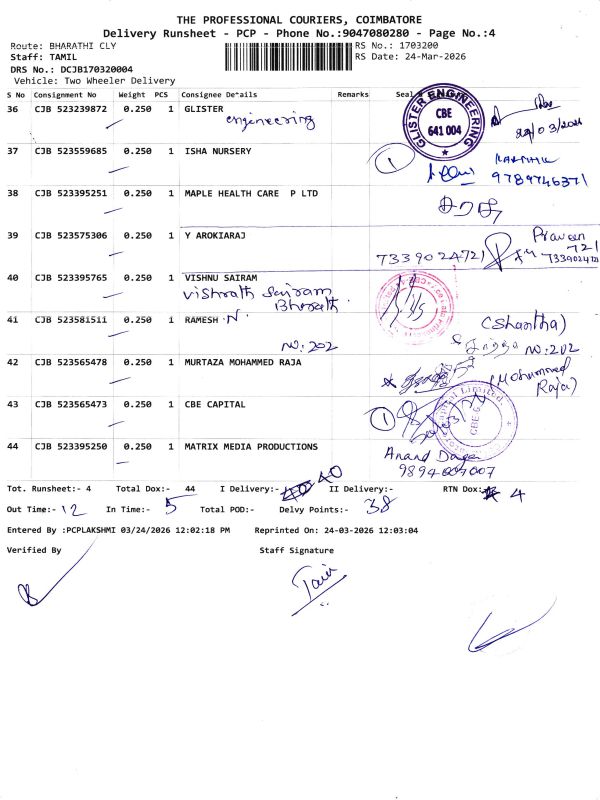 THE PROFESSIONAL COURIERS, COIMBATORE
Delivery Runsheet - PCP - Phone No.:9047080280 - Page No.:4
Route: BHARATHI CLY
RS No.: 1703200
Staff: TAMIL
RS Date: 24-Mar-2026
DRS No.: DCJB170320004
Vehicle: Two Wheeler Delivery
S No Consignment No Weight PCS Consignee Details Remarks Seal
36 CJB 523239872 0.250 1 GLISTER
engineering
GLISTER ENGINEERING
CBE
641 004
37 CJB 523559685 0.250 1 ISHA NURSERY
1
9789746371
38 CJB 523395251 0.250 1 MAPLE HEALTH CARE P LTD
39 CJB 523575306 0.250 1 Y AROKIARAJ
Praveen
7339024721
40 CJB 523395765 0.250 1 VISHNU SAIRAM
Vishnath Sairam
Bharath
41 CJB 523581511 0.250 1 RAMESH N.
(Shantha)
NO: 202
NO: 202
42 CJB 523565478 0.250 1 MURTAZA MOHAMMED RAJA
(Mohammed
Raja)
43 CJB 523565473 0.250 1 CBE CAPITAL
1
44 CJB 523395250 0.250 1 MATRIX MEDIA PRODUCTIONS
Anand
Tot. Runsheet:- 4 Total Dox:- 44 I Delivery:- 40 II Delivery:- RTN Dox: 4
Out Time:- 12 In Time:- 5 Total POD:- Delvy Points:- 38
Entered By :PCPLAKSHMI 03/24/2026 12:02:18 PM Reprinted On: 24-03-2026 12:03:04
Verified By Staff Signature